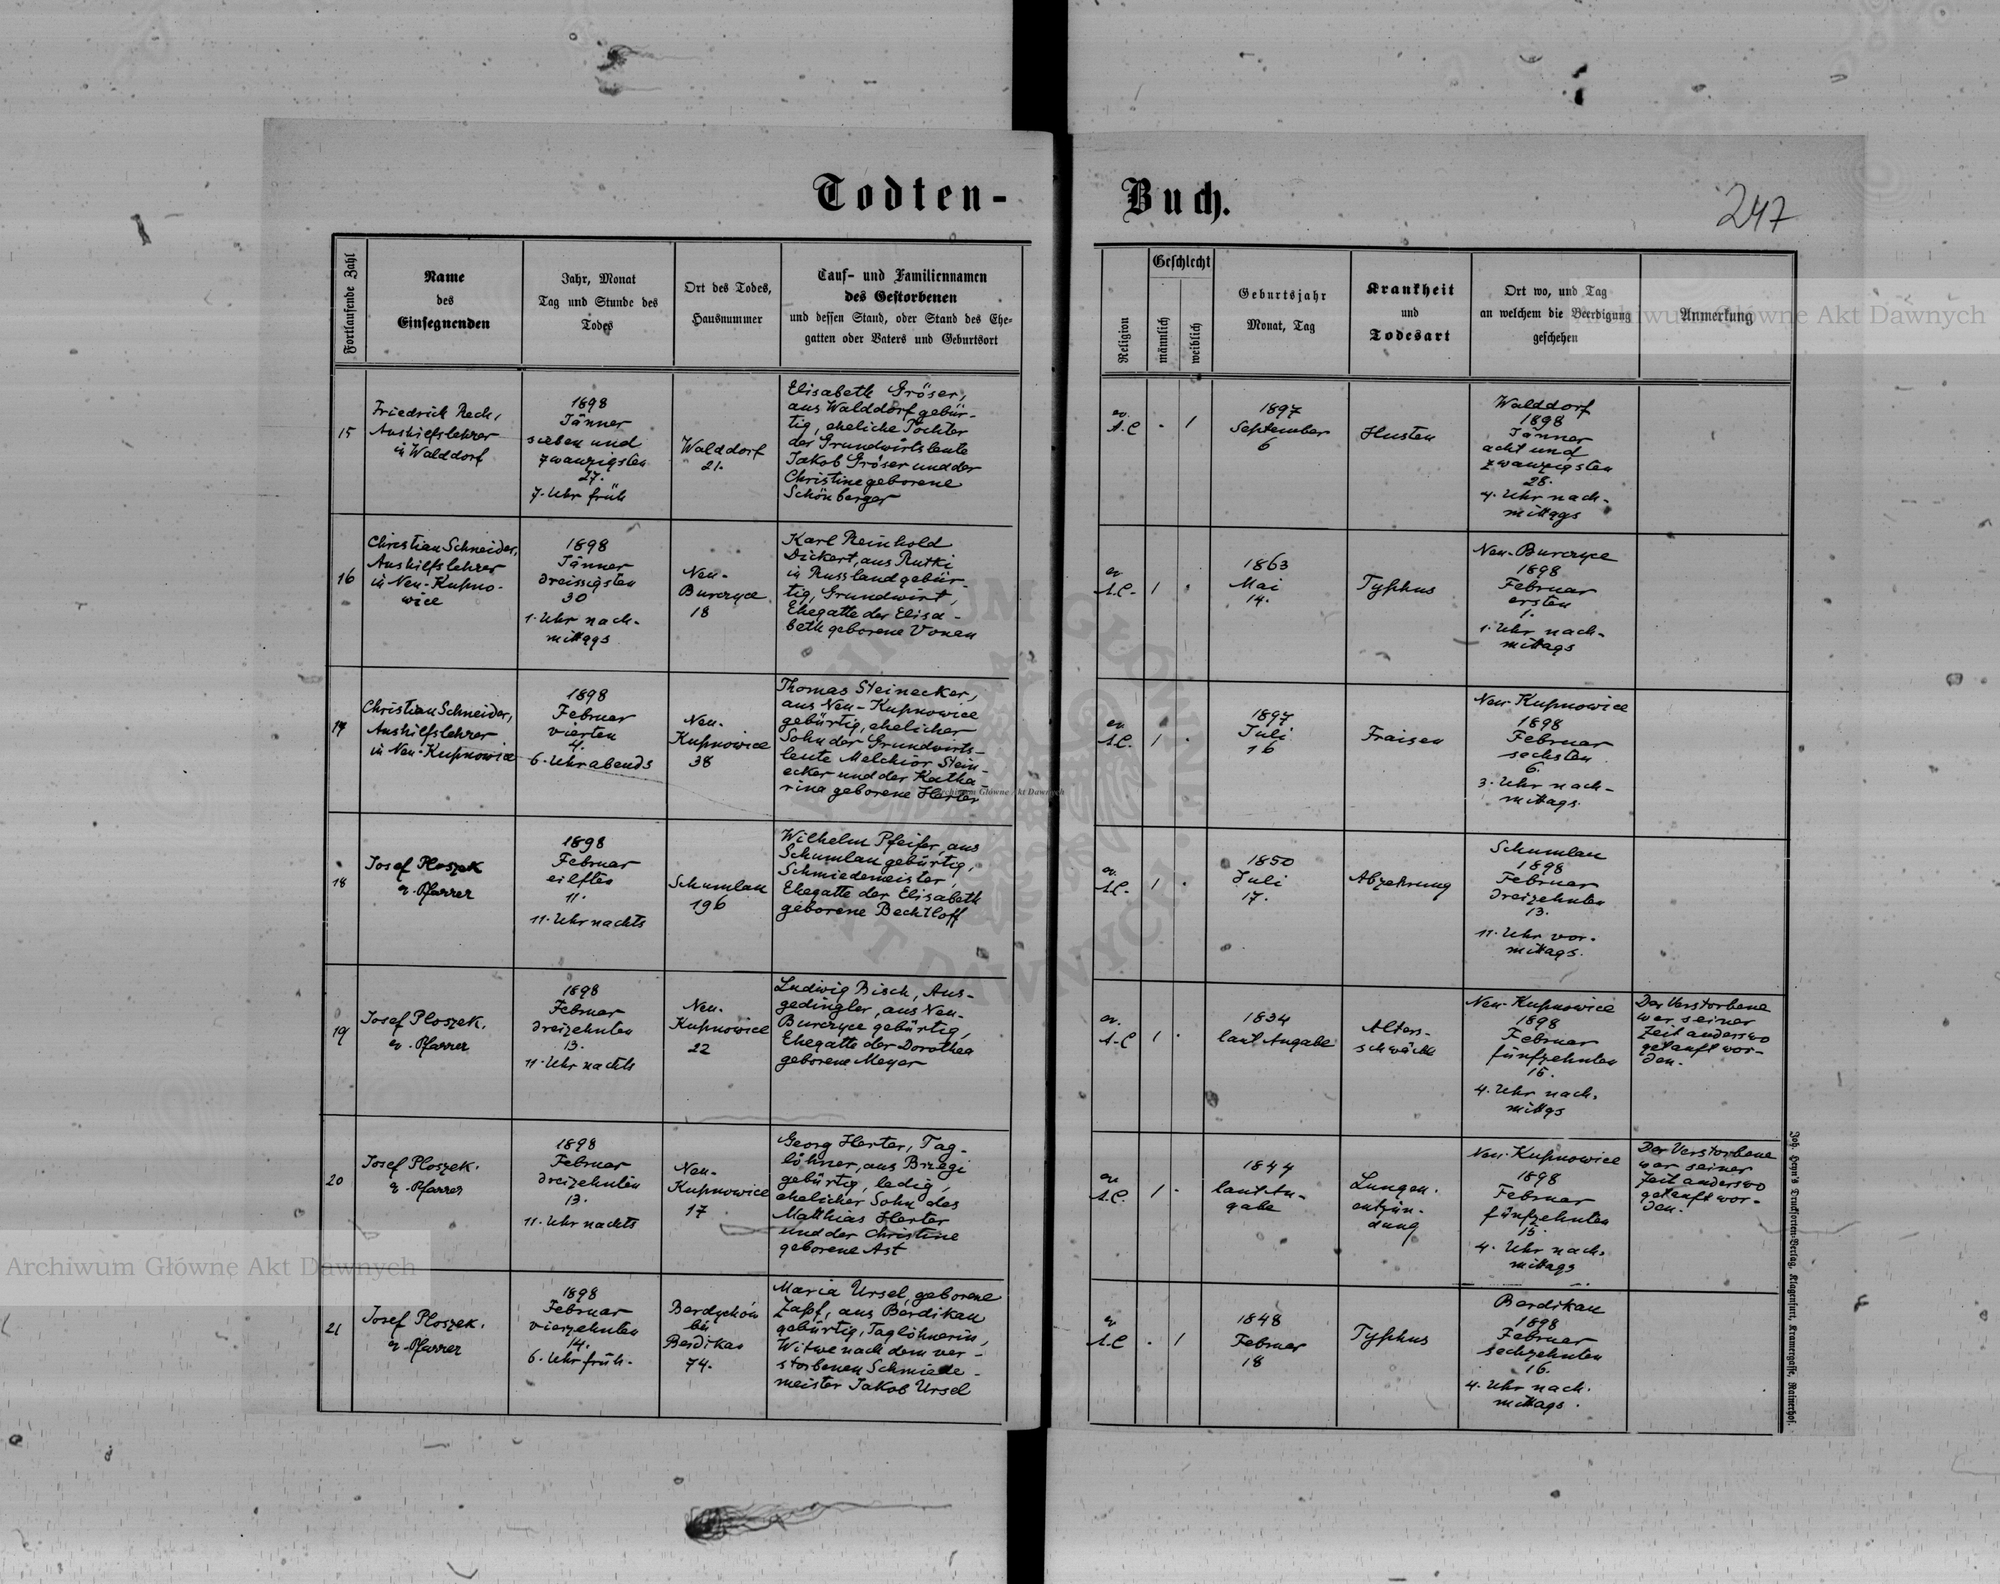 Todten-
Buch.
247
Fortlaufende Zahl
Name
des
Einsegnenden
Jahr, Monat
Tag und Stunde des
Todes
Ort des Todes,
Hausnummer
Tauf- und Familiennamen
des Gestorbenen
und dessen Stand, oder Stand des Ehe-
gatten oder Vaters und Geburtsort
Religion
Geschlecht
männlich
weiblich
Geburtsjahr
Monat, Tag
Krankheit
und
Todesart
Ort wo, und Tag
an welchem die Beerdigung
geschehen
Anmerkung
15
Friedrich Rech,
Aushilfslehrer
in Walddorf
1898
Jänner
sieben und
zwanzigsten
27.
7. Uhr früh
Walddorf
21.
Elisabeth Gröser,
aus Walddorf gebür-
tig, eheliche Tochter
der Grundwirtsleute
Jakob Gröser und der
Christine geborene
Schönberger
ev.
A.C
. 1
1897
September
6
Husten
Walddorf
1898
Jänner
acht und
zwanzigsten
28.
4. Uhr nach-
mittags
16
Christian Schneider,
Aushilfslehrer
in Neu-Kupno-
wice
1898
Jänner
dreissigsten
30
1. Uhr nach-
mittags
Neu-
Burczyce
18
Karl Reinhold
Dickert, aus Rutki
in Russland gebür-
tig, Grundwirt,
Ehegatte der Elisa-
beth geborene Vonau
ev
A.C.
1 .
1863
Mai
14.
Typhus
Neu-Burczyce
1898
Februar
ersten
1.
1. Uhr nach-
mittags
17
Christian Schneider,
Aushilfslehrer
in Neu-Kupnowice
1898
Februar
vierten
4.
6. Uhr abends
Neu-
Kupnowice
38
Thomas Steinecker,
aus Neu-Kupnowice
gebürtig, ehelicher
Sohn der Grundwirts-
leute Melchior Stein-
ecker und der Katha-
rina geborene Herter
ev
A.C.
1 .
1897
Juli
16
Fraisen
Neu-Kupnowice
1898
Februar
sechsten
6.
3. Uhr nach-
mittags.
18
Josef Ploszek
ev. Pfarrer
1898
Februar
eilften
11.
11. Uhr nachts
Schumlau
196
Wilhelm Pfeifer, aus
Schumlau gebürtig,
Schmiedemeister,
Ehegatte der Elisabeth
geborene Bechtloff
ev.
A.C.
1 .
1850
Juli
17.
Abzehrung
Schumlau
1898
Februar
dreizehnten
13.
11. Uhr vor-
mittags.
19
Josef Ploszek.
ev. Pfarrer
1898
Februar
dreizehnten
13.
11. Uhr nachts
Neu-
Kupnowice
22
Ludwig Bisch, Aus-
gedingler, aus Neu-
Burczyce gebürtig,
Ehegatte der Dorothea
geborene Meyer
ev.
A.C
1 .
1834
laut Angabe
Alters-
schwäche
Neu-Kupnowice
1898
Februar
fünfzehnten
15.
4. Uhr nach-
mittgs
Der Verstorbene
war seiner
Zeit anderswo
getauft wor-
den.
20
Josef Ploszek.
ev. Pfarrer
1898
Februar
dreizehnten
13.
11. Uhr nachts
Neu-
Kupnowice
17
Georg Herter, Tag-
löhner, aus Brzegi
gebürtig, ledig,
ehelicher Sohn des
Matthias Herter
und der Christine
geborene Ast
ev
A.C.
1 .
1844
laut An-
gabe
Lungen-
entzün-
dung
Neu-Kupnowice
1898
Februar
fünfzehnten
15.
4. Uhr nach-
mittags
Der Verstorbene
war seiner
Zeit anderswo
getauft wor-
den.
21
Josef Ploszek.
ev. Pfarrer
1898
Februar
vierzehnten
14.
6. Uhr früh.
Berdychów
bei
Berdikau
74.
Maria Ursel, geborene
Zapf, aus Berdikau
gebürtig, Taglöhnerin,
Witwe nach dem ver-
storbenen Schmiede-
meister Jakob Ursel
ev
A.C
. 1
1848
Februar
18
Typhus
Berdikau
1898
Februar
sechzehnten
16.
4. Uhr nach-
mittags.
Joh. Heyn's Drucksorten-Verlag, Klagenfurt, Kramergasse, Rainerhof.
Archiwum Główne Akt Dawnych
Archiwum Główne Akt Dawnych
Archiwum Główne Akt Dawnych
ARCHIWUM GŁÓWNE AKT DAWNYCH